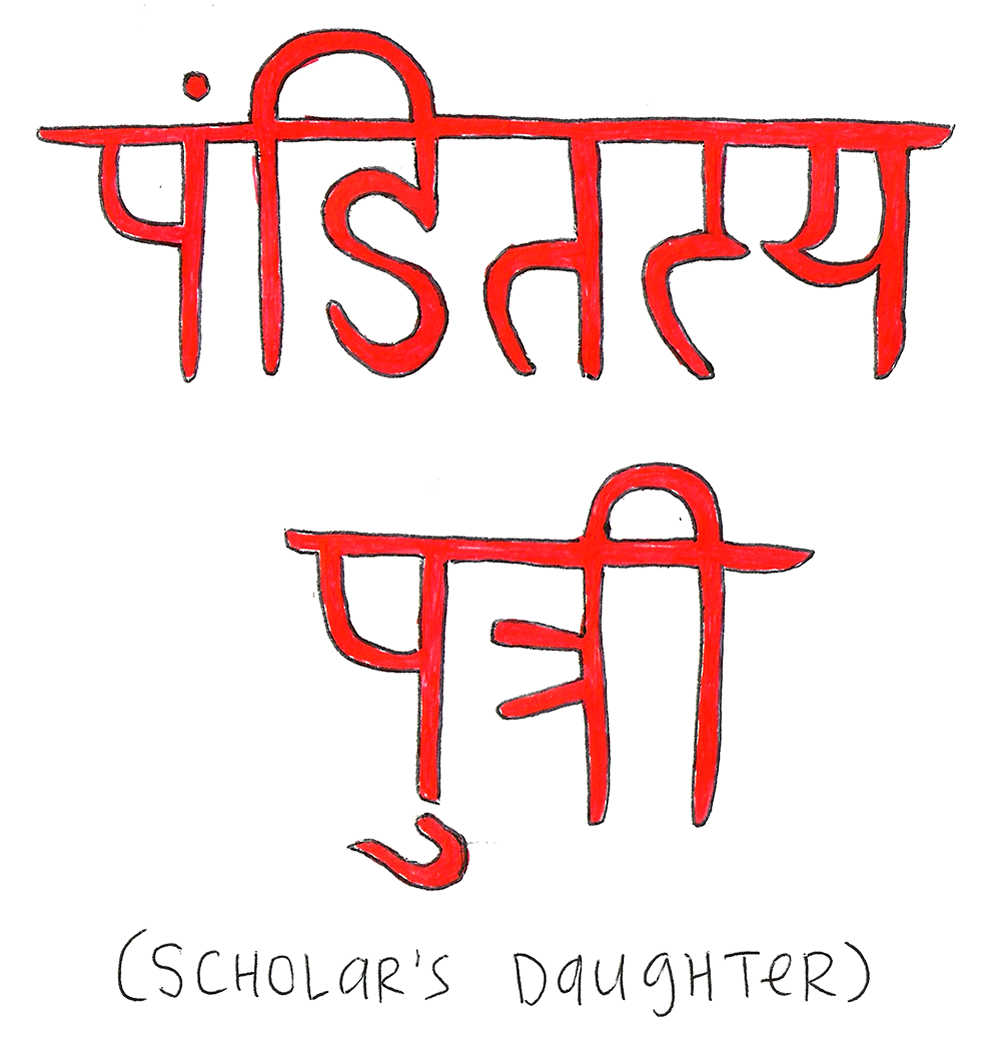 पंडितस्य
पुत्री
(SCHOLaR's DaugHTeR)